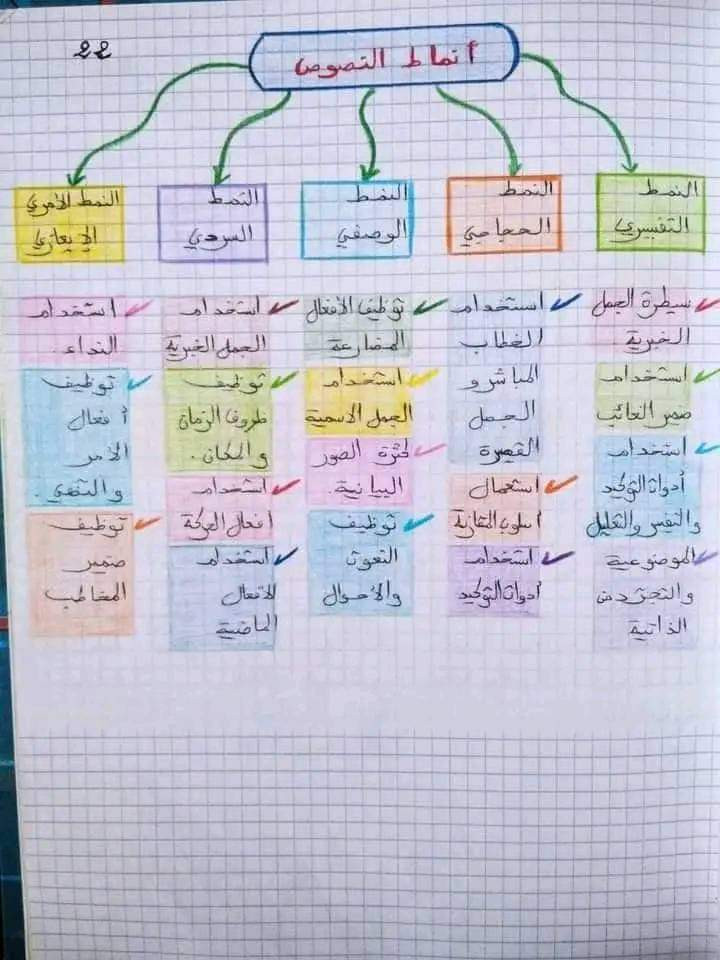 22
أنماط النصوص
النمط
التفسيري
سيطرة الجمل
الخبرية
استخدام
ضمير الغائب
استخدام
أدوات التوكيد
والتفسير والتعليل
الموضوعية
والتجرد من
الذاتية
النمط
الحجاجي
استخدام
الخطاب
المباشر و
الجمل
القصيرة
استعمال
أسلوب المقارنة
استخدام
أدوات التوكيد
النمط
الوصفي
توظيف الأفعال
المضارعة
استخدام
الجمل الاسمية
كثرة الصور
البيانية.
توظيف
النعوت
والأحوال
النمط
السردي
استخدام
الجمل الخبرية
توظيف
ظروف الزمان
والمكان.
استخدام
أفعال الحركة
استخدام
الأفعال
الماضية
النمط الأمري
الإيعازي
استخدام
النداء.
توظيف
أفعال
الأمر
والنهي.
توظيف
ضمير
المخاطب